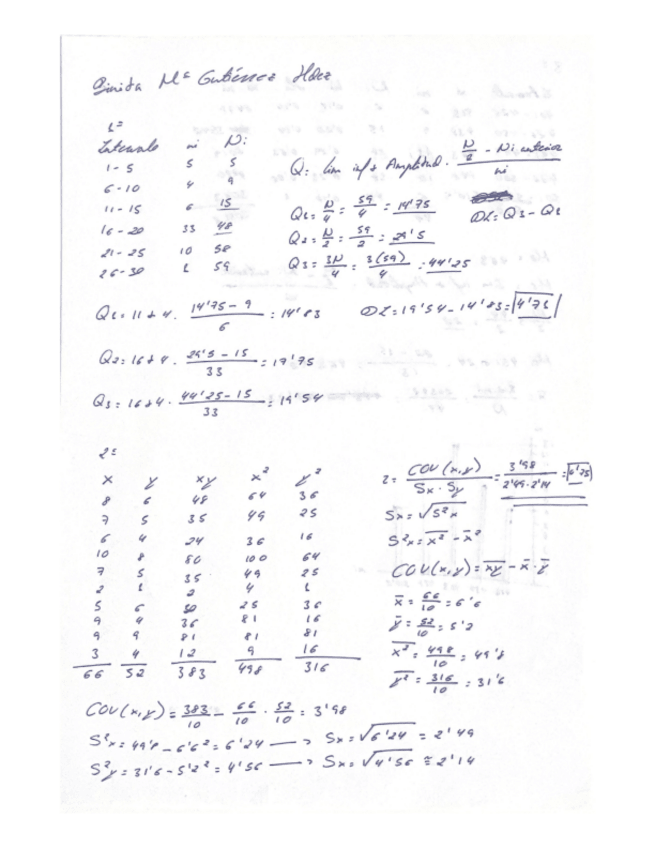 Mª Gutiérrez Hdez
1=
Intervalo ni Ni
1-5 5 5
6-10 4 9
11-15 6 15
16-20 33 48
21-25 10 58
26-30 1 59
Q: lim inf + Amplitud · N/2 - Ni anterior / ni
Q1 = N/4 = 59/4 = 14'75
DI = Q3 - Q1
Q2 = N/2 = 59/2 = 29'5
Q3 = 3N/4 = 3(59)/4 = 44'25
Q1 = 11 + 4 · 14'75 - 9 / 6 = 14'83
DI = 19'54 - 14'83 = 4'71
Q2 = 16 + 4 · 29'5 - 15 / 33 = 17'75
Q3 = 16 + 4 · 44'25 - 15 / 33 = 19'54
2=
x y xy x² y²
8 6 48 64 36
7 5 35 49 25
6 4 24 36 16
10 8 80 100 64
7 5 35 49 25
2 1 2 4 1
5 6 30 25 36
9 4 36 81 16
9 9 81 81 81
3 4 12 9 16
66 52 383 498 316
r = COV(x,y) / Sx · Sy = 3'98 / 2'49 · 2'14 =
Sx = √S²x
S²x = x̄² - x̄²
COV(x,y) = x̄ȳ - x̄ · ȳ
x̄ = 66/10 = 6'6
ȳ = 52/10 = 5'2
x̄² = 498/10 = 49'8
ȳ² = 316/10 = 31'6
COV(x,y) = 383/10 - 66/10 · 52/10 = 3'98
S²x = 49'8 - 6'6² = 6'24 → Sx = √6'24 = 2'49
S²y = 31'6 - 5'2² = 4'56 → Sx = √4'56 ≅ 2'14